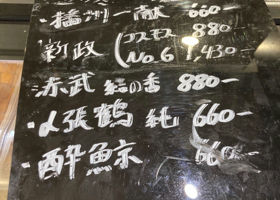 ・播州一献 660-
・新政 (コスモス 880
No.6 1,430-
赤武 結の香 880-
・〆張鶴 純 660-
・酔鯨 660-